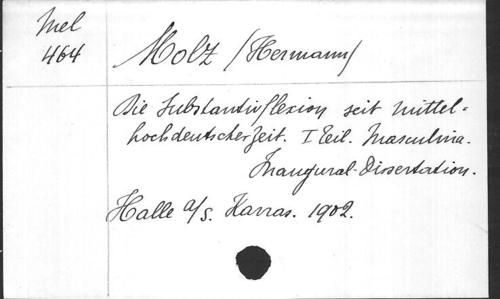 Mel
464
Molz (Hermann)
Die Substantivflexion seit mittel=
hochdeutscher Zeit. I Teil. Masculina.
Inaugural-Dissertation.
Halle a/S. Karras. 1902.